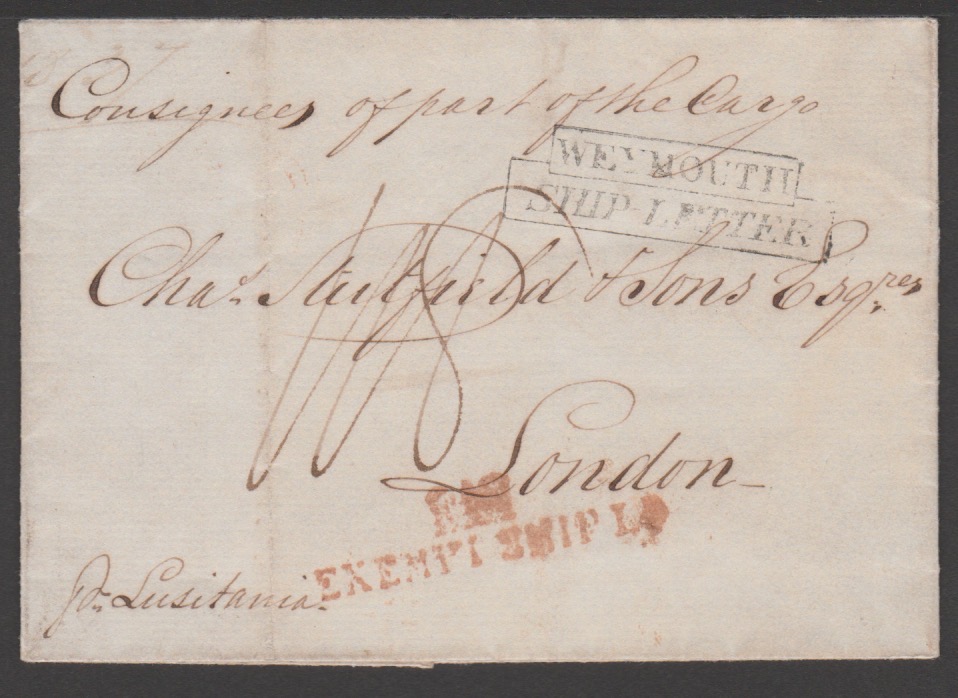 Consignees of part of the Cargo
WEYMOUTH
SHIP-LETTER
Chas. Stutfield & Sons Esqres
London
EXEMPT SHIP L
pr. Lusitania.